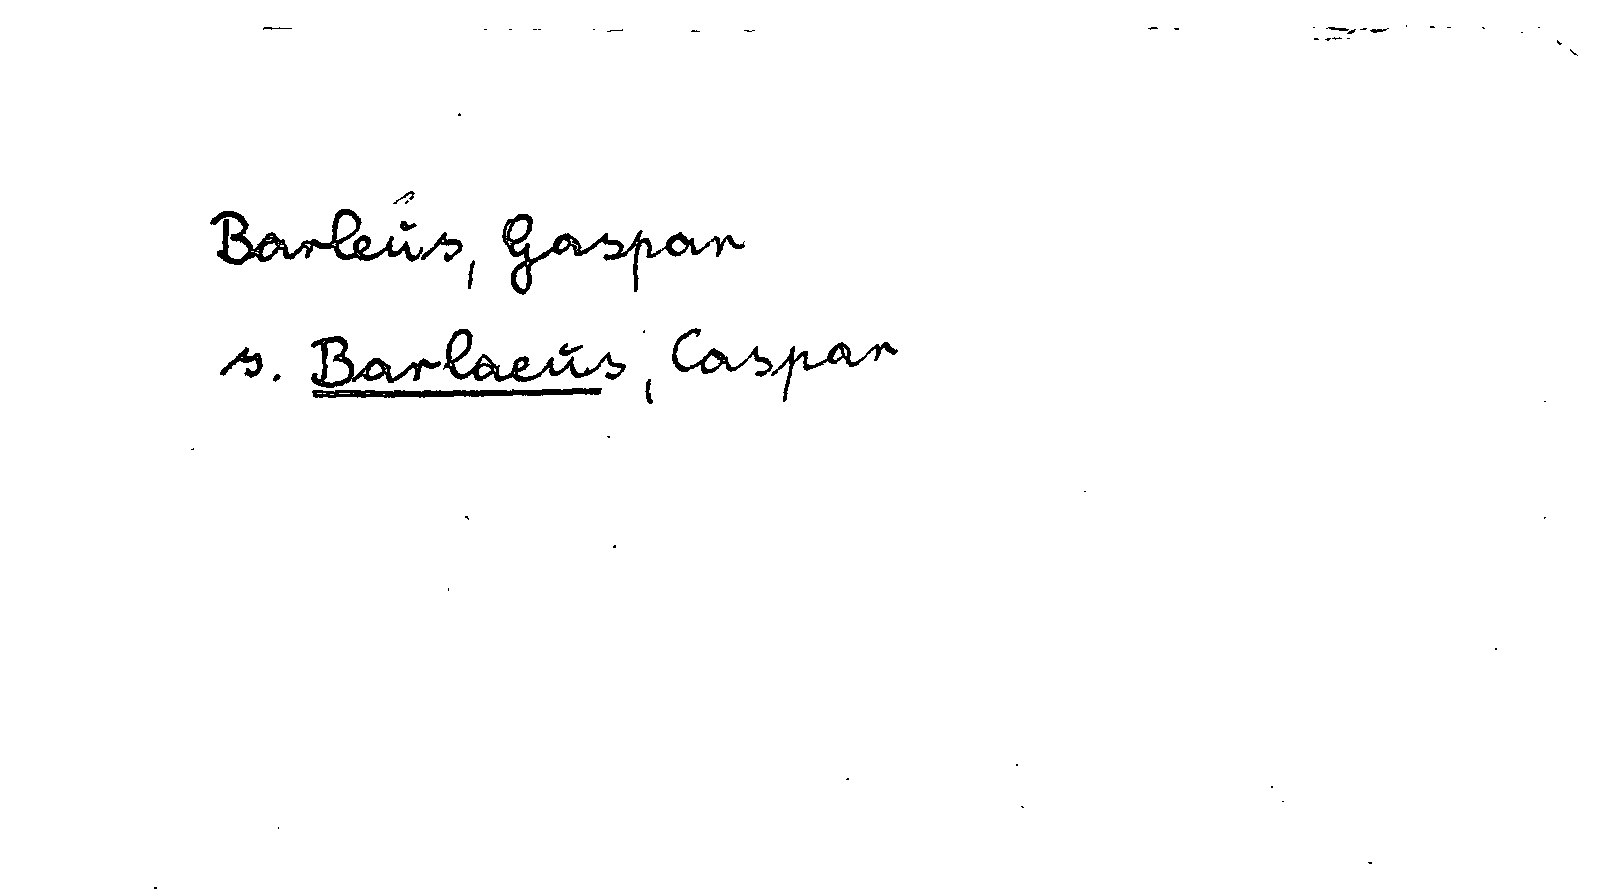 Barleus, Gaspar
s. Barlaeus, Caspar